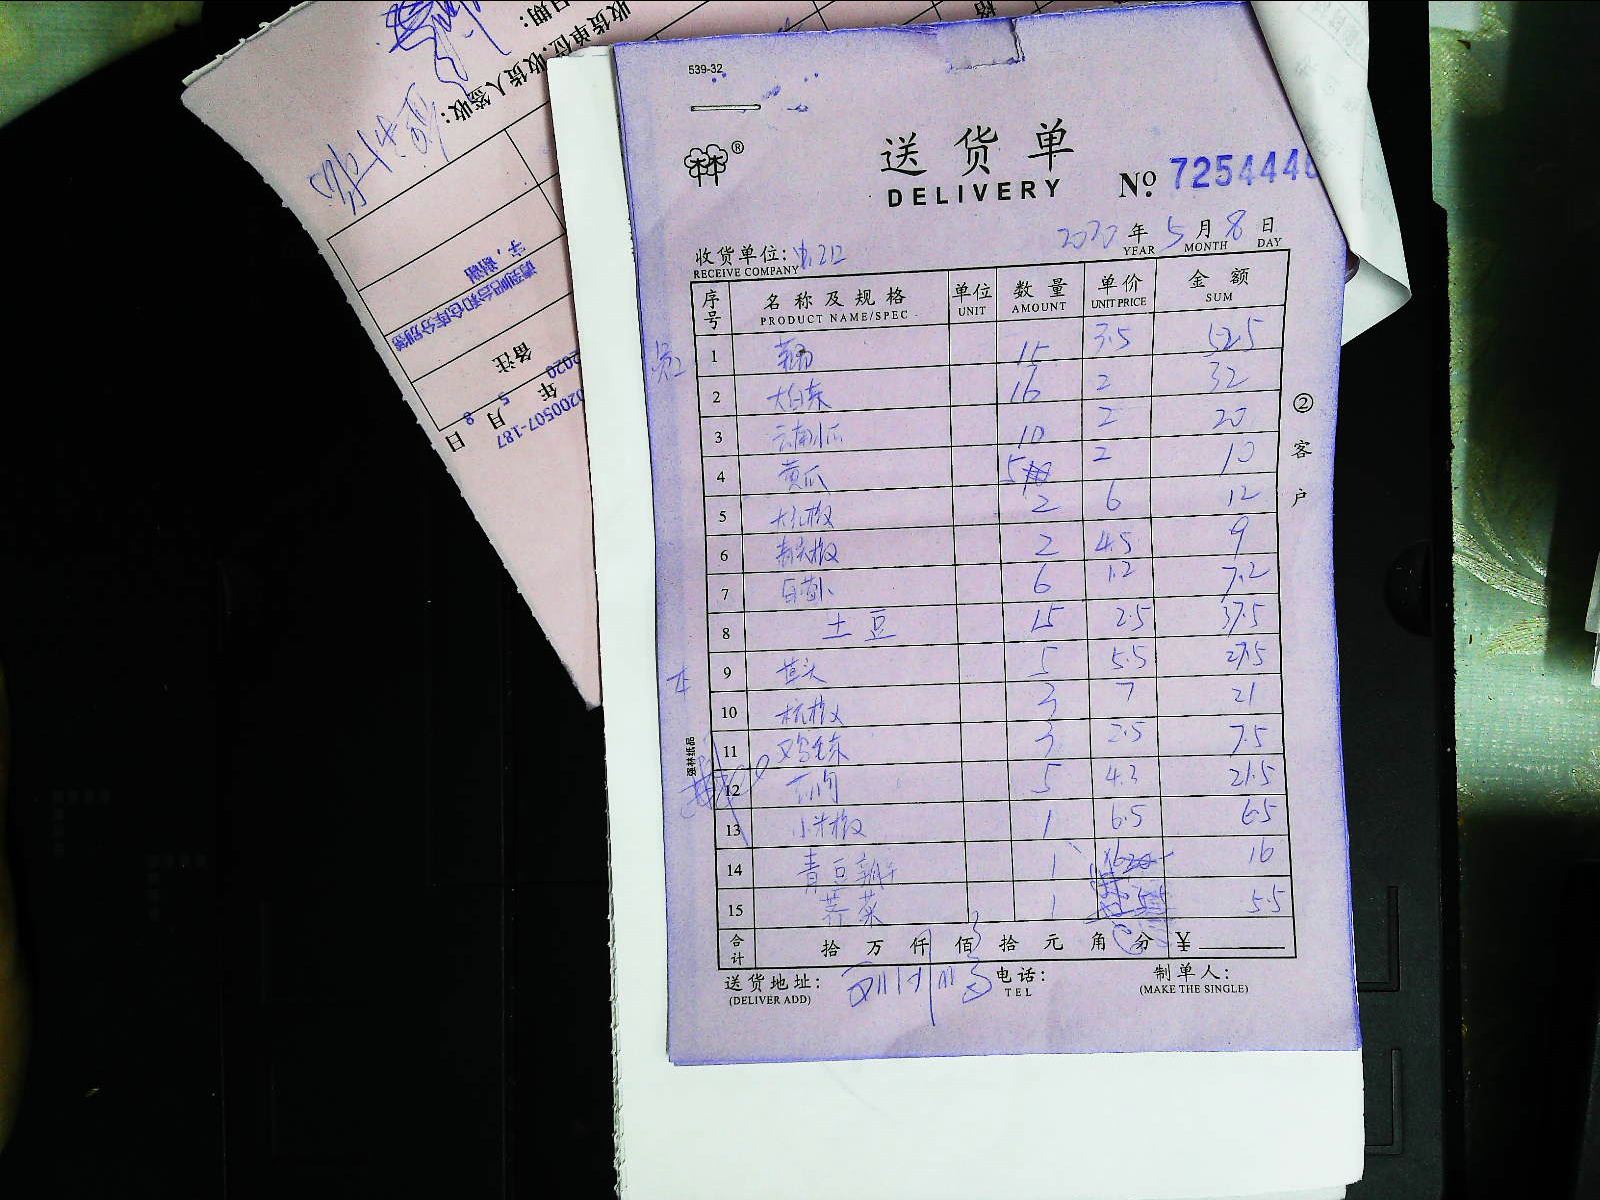 539-32
®
送货单
DELIVERY
No. 7254440
2020 年 5 月 8 日
YEAR MONTH DAY
收货单位:
RECEIVE COMPANY
序号 名称及规格 单位 数量 单价 金额
PRODUCT NAME/SPEC UNIT AMOUNT UNIT PRICE SUM
1 15 3.5 52.5
2 大白菜 16 2 32
3 云南小瓜 10 2 20
4 黄瓜 5 2 10
5 大红椒 2 6 12
6 青尖椒 2 4.5 9
7 白萝卜 6 1.2 7.2
8 土豆 15 2.5 37.5
9 5 5.5 27.5
10 杭椒 3 7 21
11 鸡毛菜 3 2.5 7.5
12 5 4.3 21.5
13 小米椒 1 6.5 6.5
14 青豆瓣 1 16 16
15 荠菜 1 5.5
合计 拾 万 仟 佰 拾 元 角 分 ¥
送货地址: 电话: 制单人:
(DELIVER ADD) TEL (MAKE THE SINGLE)
② 客户
强林纸品
收货单位:
收货人签收:
日期:
格
请到吧台和仓库分别签
字,谢谢
备注
2020 年 5 月 8 日
0200507-187